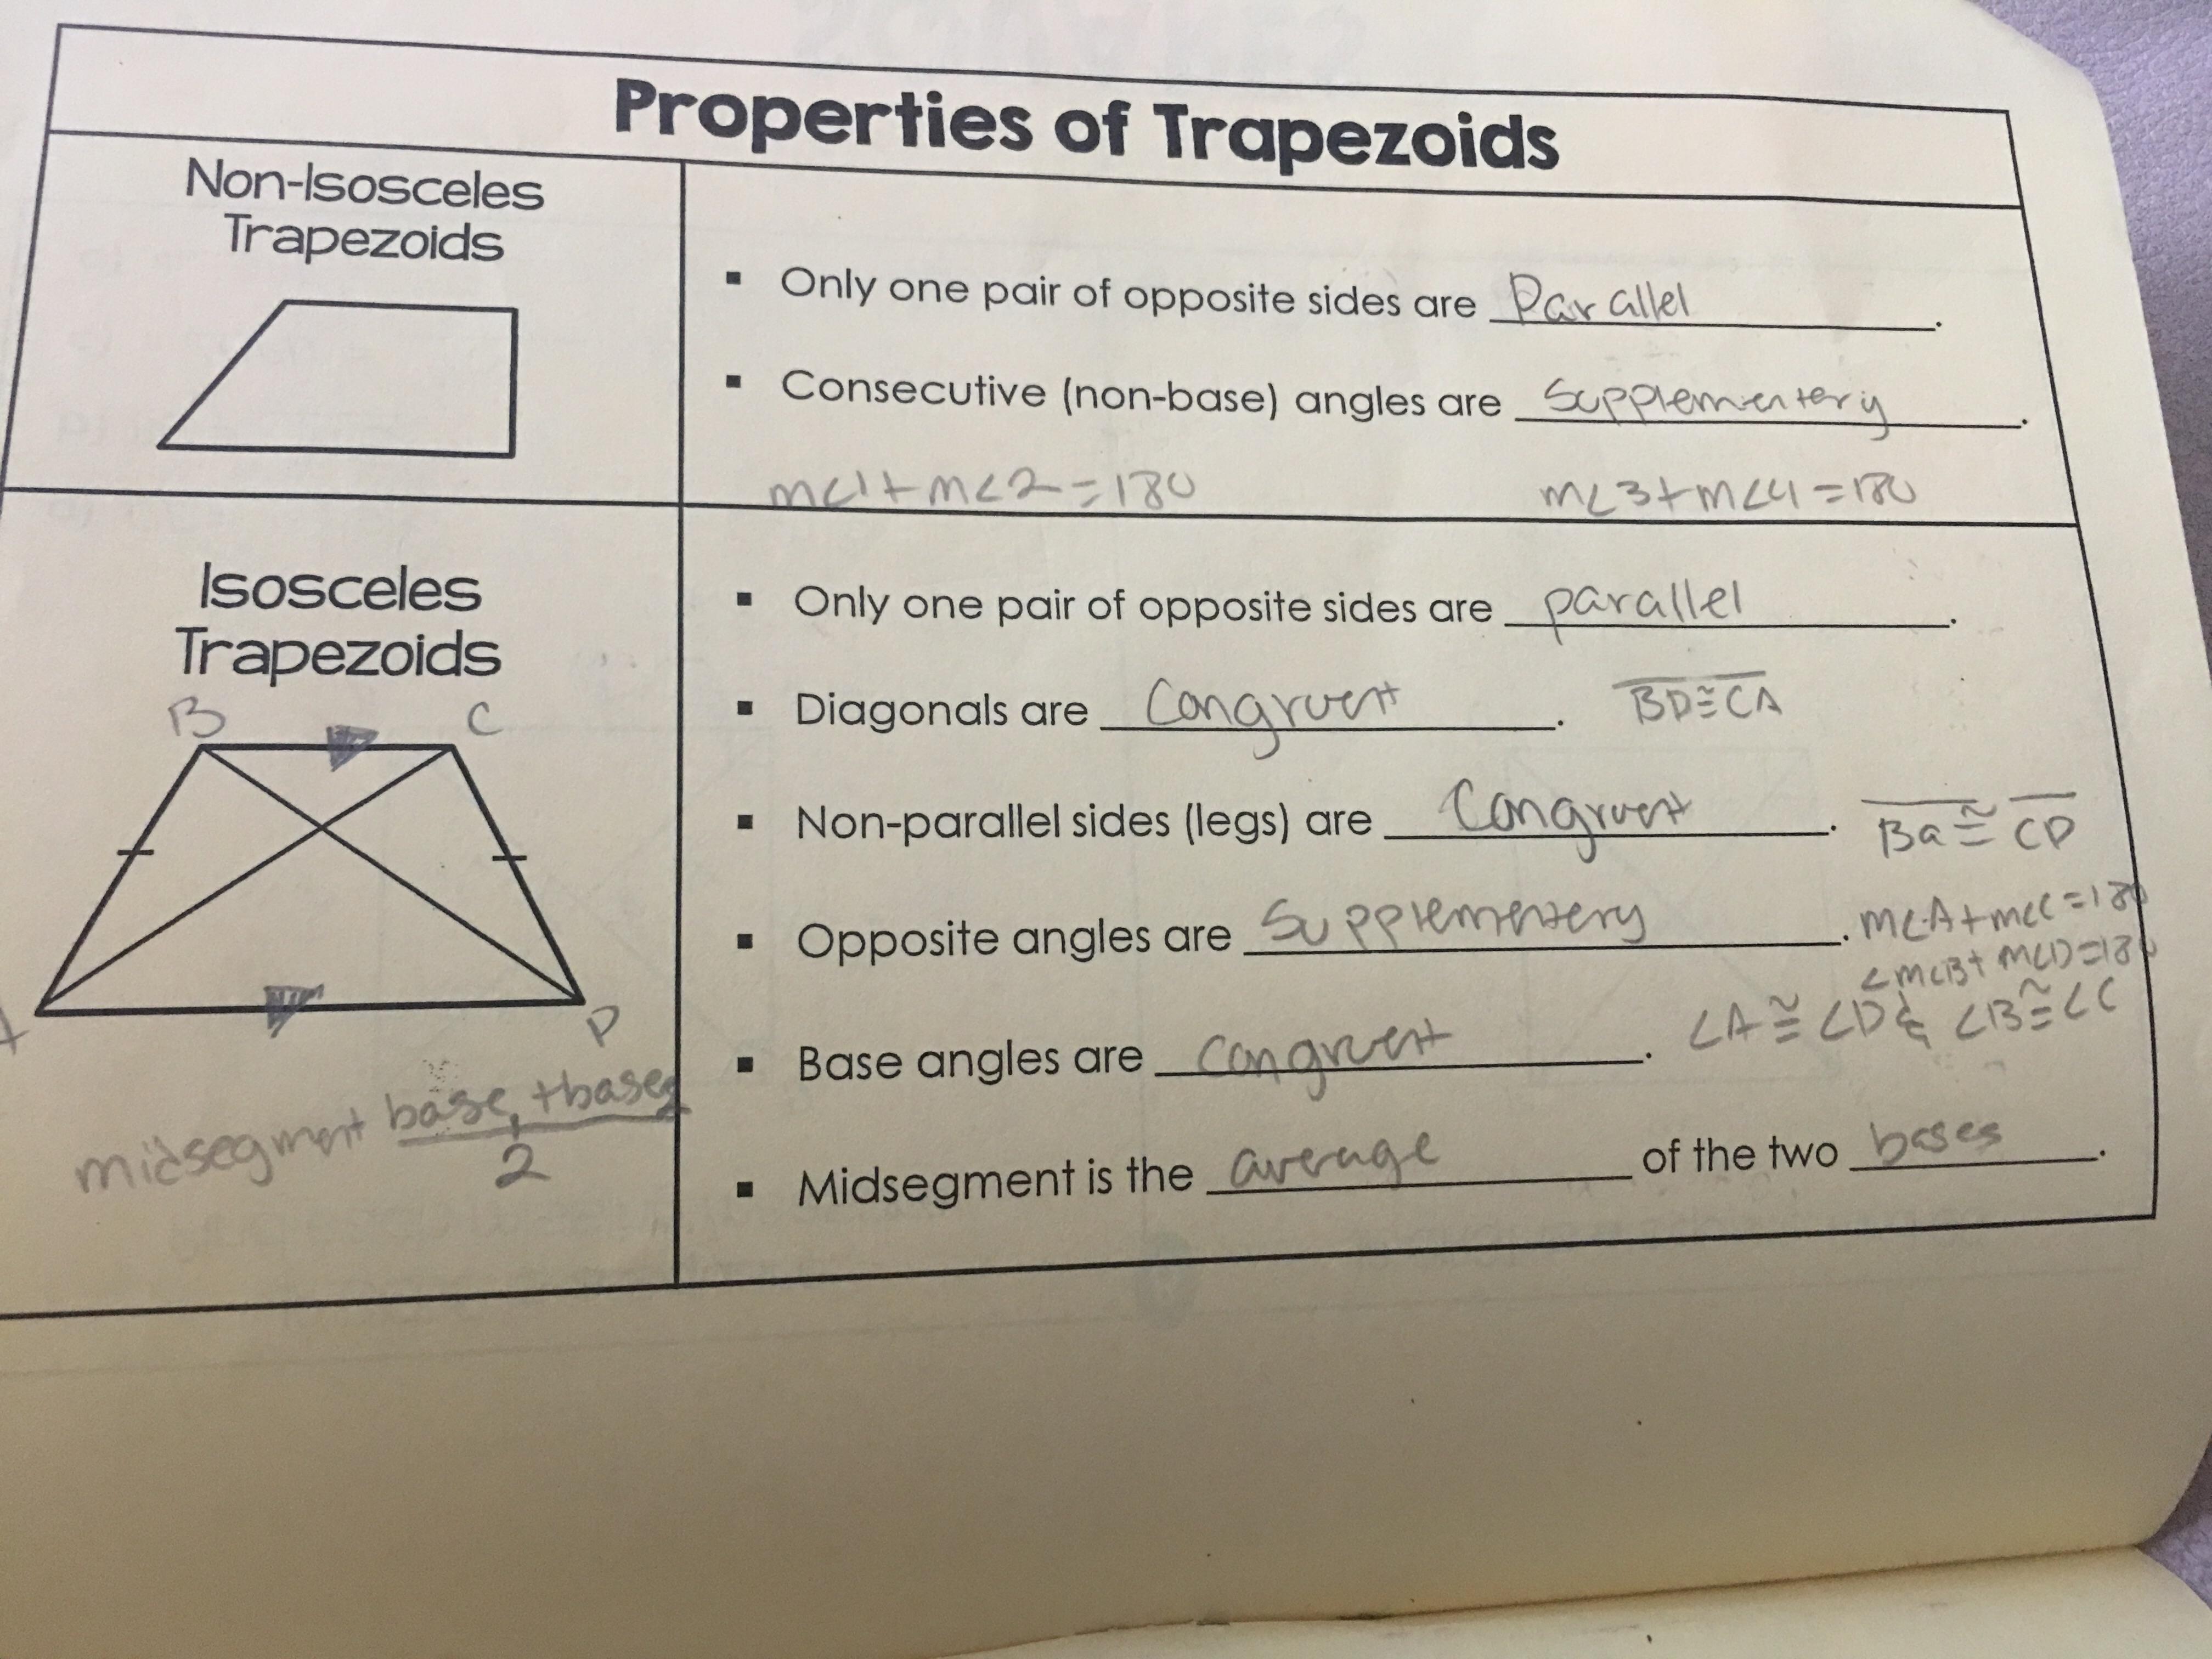 Properties of Trapezoids
Non-Isosceles
Trapezoids
▪ Only one pair of opposite sides are Parallel.
▪ Consecutive (non-base) angles are Supplementery.
m∠1+m∠2=180 m∠3+m∠4=180
Isosceles
Trapezoids
B C
A D
midsegment base1+base2
2
▪ Only one pair of opposite sides are parallel.
▪ Diagonals are Congruent. BD≅CA
▪ Non-parallel sides (legs) are Congruent. Ba≅CD
▪ Opposite angles are Supplementery. m∠A+m∠C=180
∠m∠B+m∠D=180
▪ Base angles are congruent. ∠A≅∠D & ∠B≅∠C
▪ Midsegment is the average of the two bases.